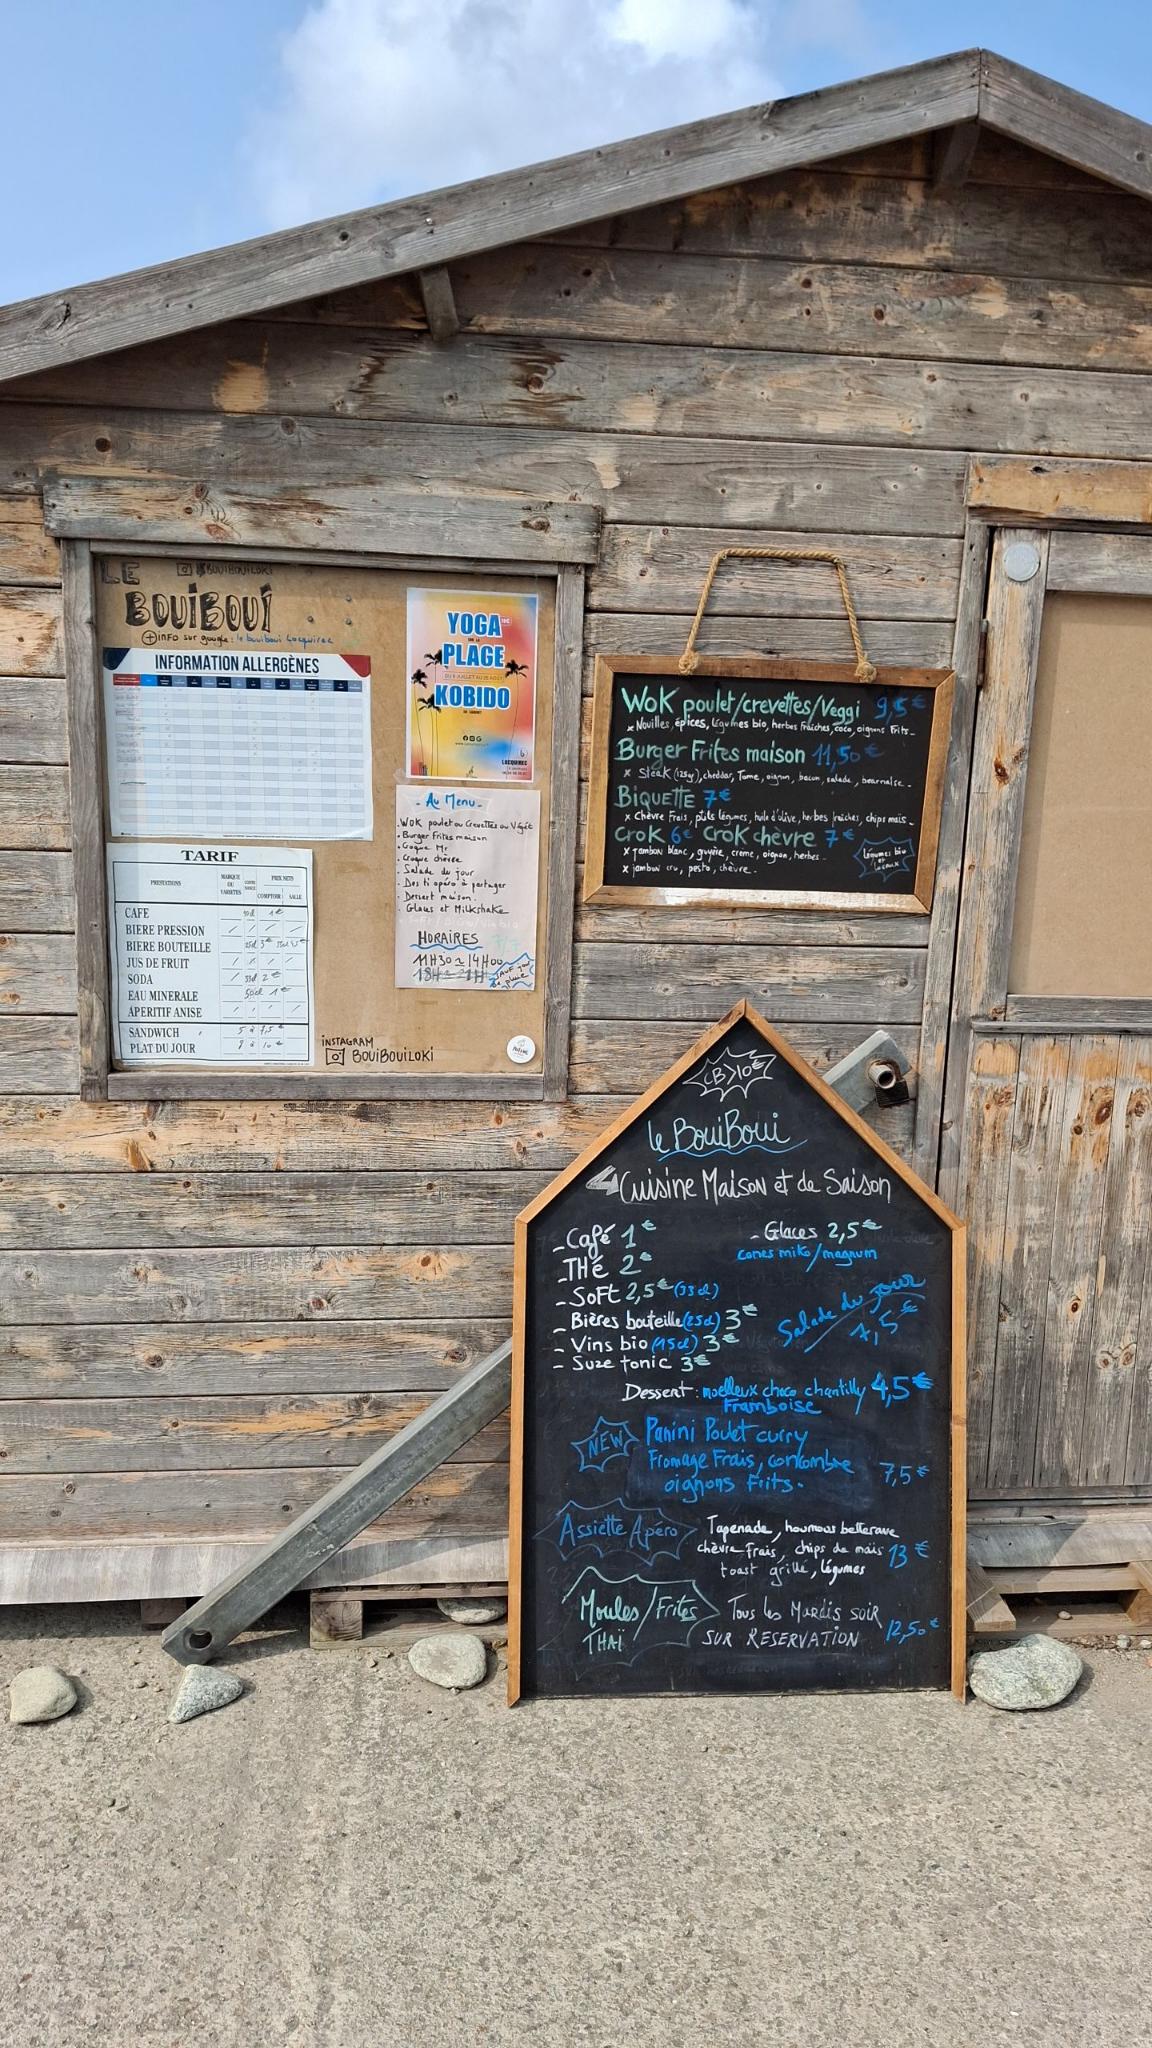 LE
BOUIBOUILOKI
BOUIBOUI
+ INFO sur google : le bouiboui Locquirec
INFORMATION ALLERGÈNES
YOGA
SUR LA
PLAGE
KOBIDO
LOCQUIREC
- Au Menu -
. WOK poulet ou Crevettes ou Végé
. Burger Frites maison
. Croque Mr
. Croque chèvre
. Salade du jour
. Des ti apéro à partager
. Dessert maison
. Glaces et Milkshake
HORAIRES 7/7
11H30 ~ 14H00
18H ~ 21H
SAUF jour de pluie
TARIF
PRESTATIONS MARQUE OU VARIETES PRIX NETS
COMPTOIR SALLE
CAFE 1€
BIERE PRESSION / / / /
BIERE BOUTEILLE 25cl 3€
JUS DE FRUIT / / / /
SODA / 33cl 2€
EAU MINERALE 50cl 1€
APERITIF ANISE / / / /
SANDWICH 5 à 7,5€
PLAT DU JOUR 9 à 10€
INSTAGRAM
BOUIBOUILOKI
WOK poulet/crevettes/Veggi 9,5€
x Nouilles, épices, légumes bio, herbes fraîches, coco, oignons frits.
Burger Frites maison 11,50€
x Steak (125g), cheddar, Tome, oignon, bacon, salade, bearnaise.
BIQUETTE 7€
x Chèvre Frais, ptits légumes, huile d'olive, herbes fraîches, chips maïs.
CROK 6€ CROK chèvre 7€
x jambon blanc, gruyère, crème, oignon, herbes.
x jambon cru, pesto, chèvre.
légumes bio
et
locaux
CB>10€
le BouiBoui
Cuisine Maison et de Saison
- Café 1€
- Glaces 2,5€
cones miko/magnum
- THé 2€
- SoFt 2,5€ (33cl)
- Bières bouteille (25cl) 3€
- Vins bio (15cl) 3€
- Suze tonic 3€
Salade du jour
Dessert : moelleux choco chantilly 4,5€
Framboise
NEW
Panini Poulet curry
Fromage Frais, concombre
oignons Frits. 7,5€
Assiette Apero
Tapenade, houmous betterave
chèvre Frais, chips de maïs 13€
toast grillé, légumes
Moules/Frites
THAÏ
TOUS les MARDIS SOIR
SUR RESERVATION 12,50€